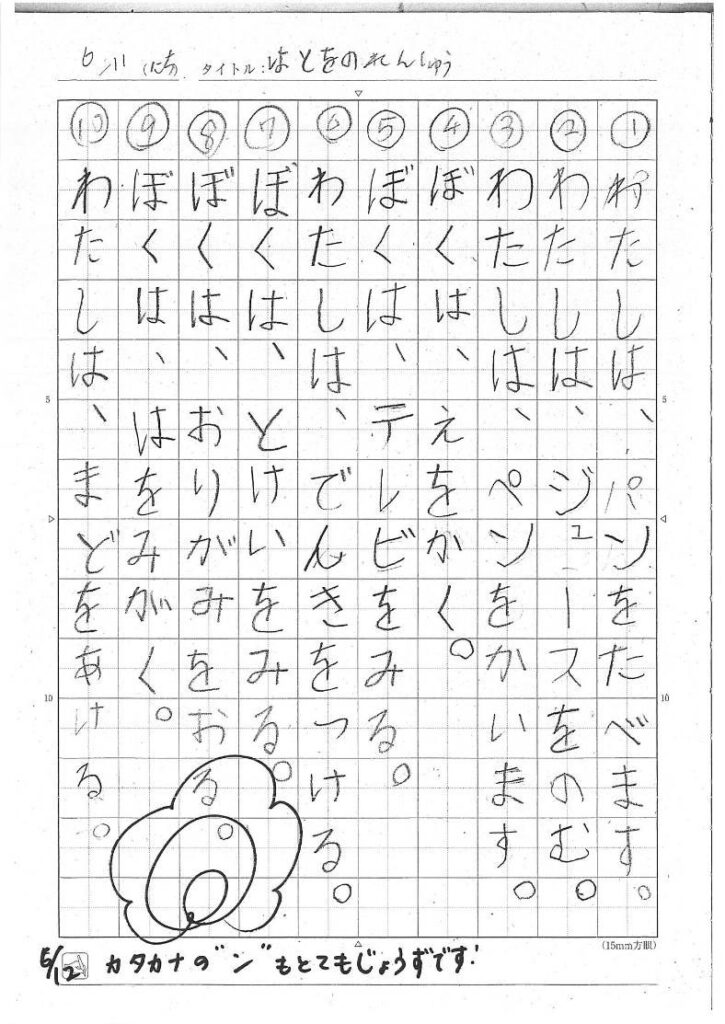 6/11 (にち) タイトル:はとをのれんしゅう
5
10
①わたしは、パンをたべます。
②わたしは、ジュースをのむ。
③わたしは、ペンをかいます。
④ぼくは、えをかく。
⑤ぼくは、テレビをみる。
⑥わたしは、でんきをつける。
⑦ぼくは、とけいをみる。
⑧ぼくは、おりがみをおる。
⑨ぼくは、はをみがく。
⑩わたしは、まどをあける。
5
10
(15mm方眼)
6/12 カタカナの"ン"もとてもじょうずです!